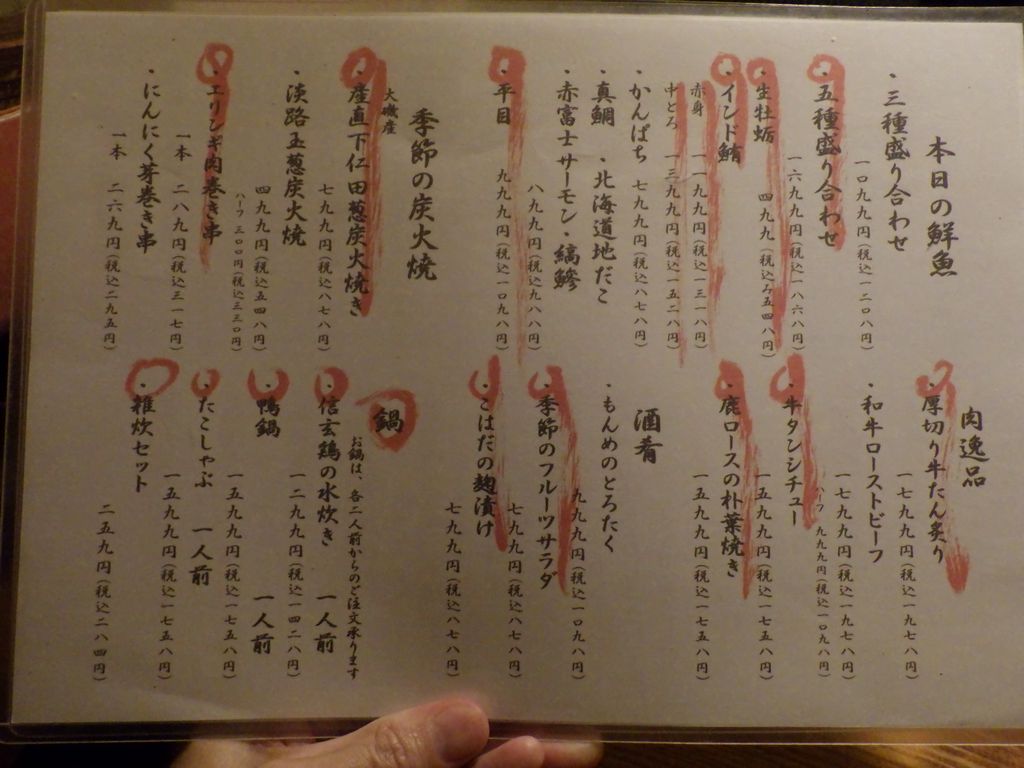 本日の鮮魚
・三種盛り合わせ
一〇九九円(税込一二〇八円)
・五種盛り合わせ
一六九九円(税込一八六八円)
・生牡蛎
四九九(税込み五四八円)
・インド鮪
赤身 一一九九円(税込一三一八円)
中とろ 一三九九円(税込一五二八円)
・かんぱち 七九九円(税込八七八円)
・真鯛 ・北海道地だこ
・赤富士サーモン・縞鯵
八九九円(税込九八八円)
・平目
九九九円(税込一〇九八円)
季節の炭火焼
大磯産
・産直下仁田葱炭火焼き
七九九円(税込八七八円)
・淡路玉葱炭火焼
四九九円(税込五四八円)
ハーフ 三〇〇円(税込三三〇円)
・エリンギ肉巻き串
一本 二八九円(税込三一七円)
・にんにく芽巻き串
一本 二六九円(税込二九五円)
肉逸品
・厚切り牛たん炙り
一七九九円(税込一九七八円)
・和牛ローストビーフ
一七九九円(税込一九七八円)
ハーフ 九九九円(税込一〇九八円)
・牛タンシチュー
一五九九円(税込一七五八円)
・鹿ロースの朴葉焼き
一五九九円(税込一七五八円)
酒肴
・もんめのとろたく
九九九円(税込一〇九八円)
・季節のフルーツサラダ
七九九円(税込八七八円)
・こはだの麹漬け
七九九円(税込八七八円)
鍋
お鍋は、各二人前からのご注文承ります
・信玄鶏の水炊き 一人前
一二九九円(税込一四二八円)
・鴨鍋 一人前
一五九九円(税込一七五八円)
・たこしゃぶ 一人前
一五九九円(税込一七五八円)
・雑炊セット
二五九円(税込二八四円)